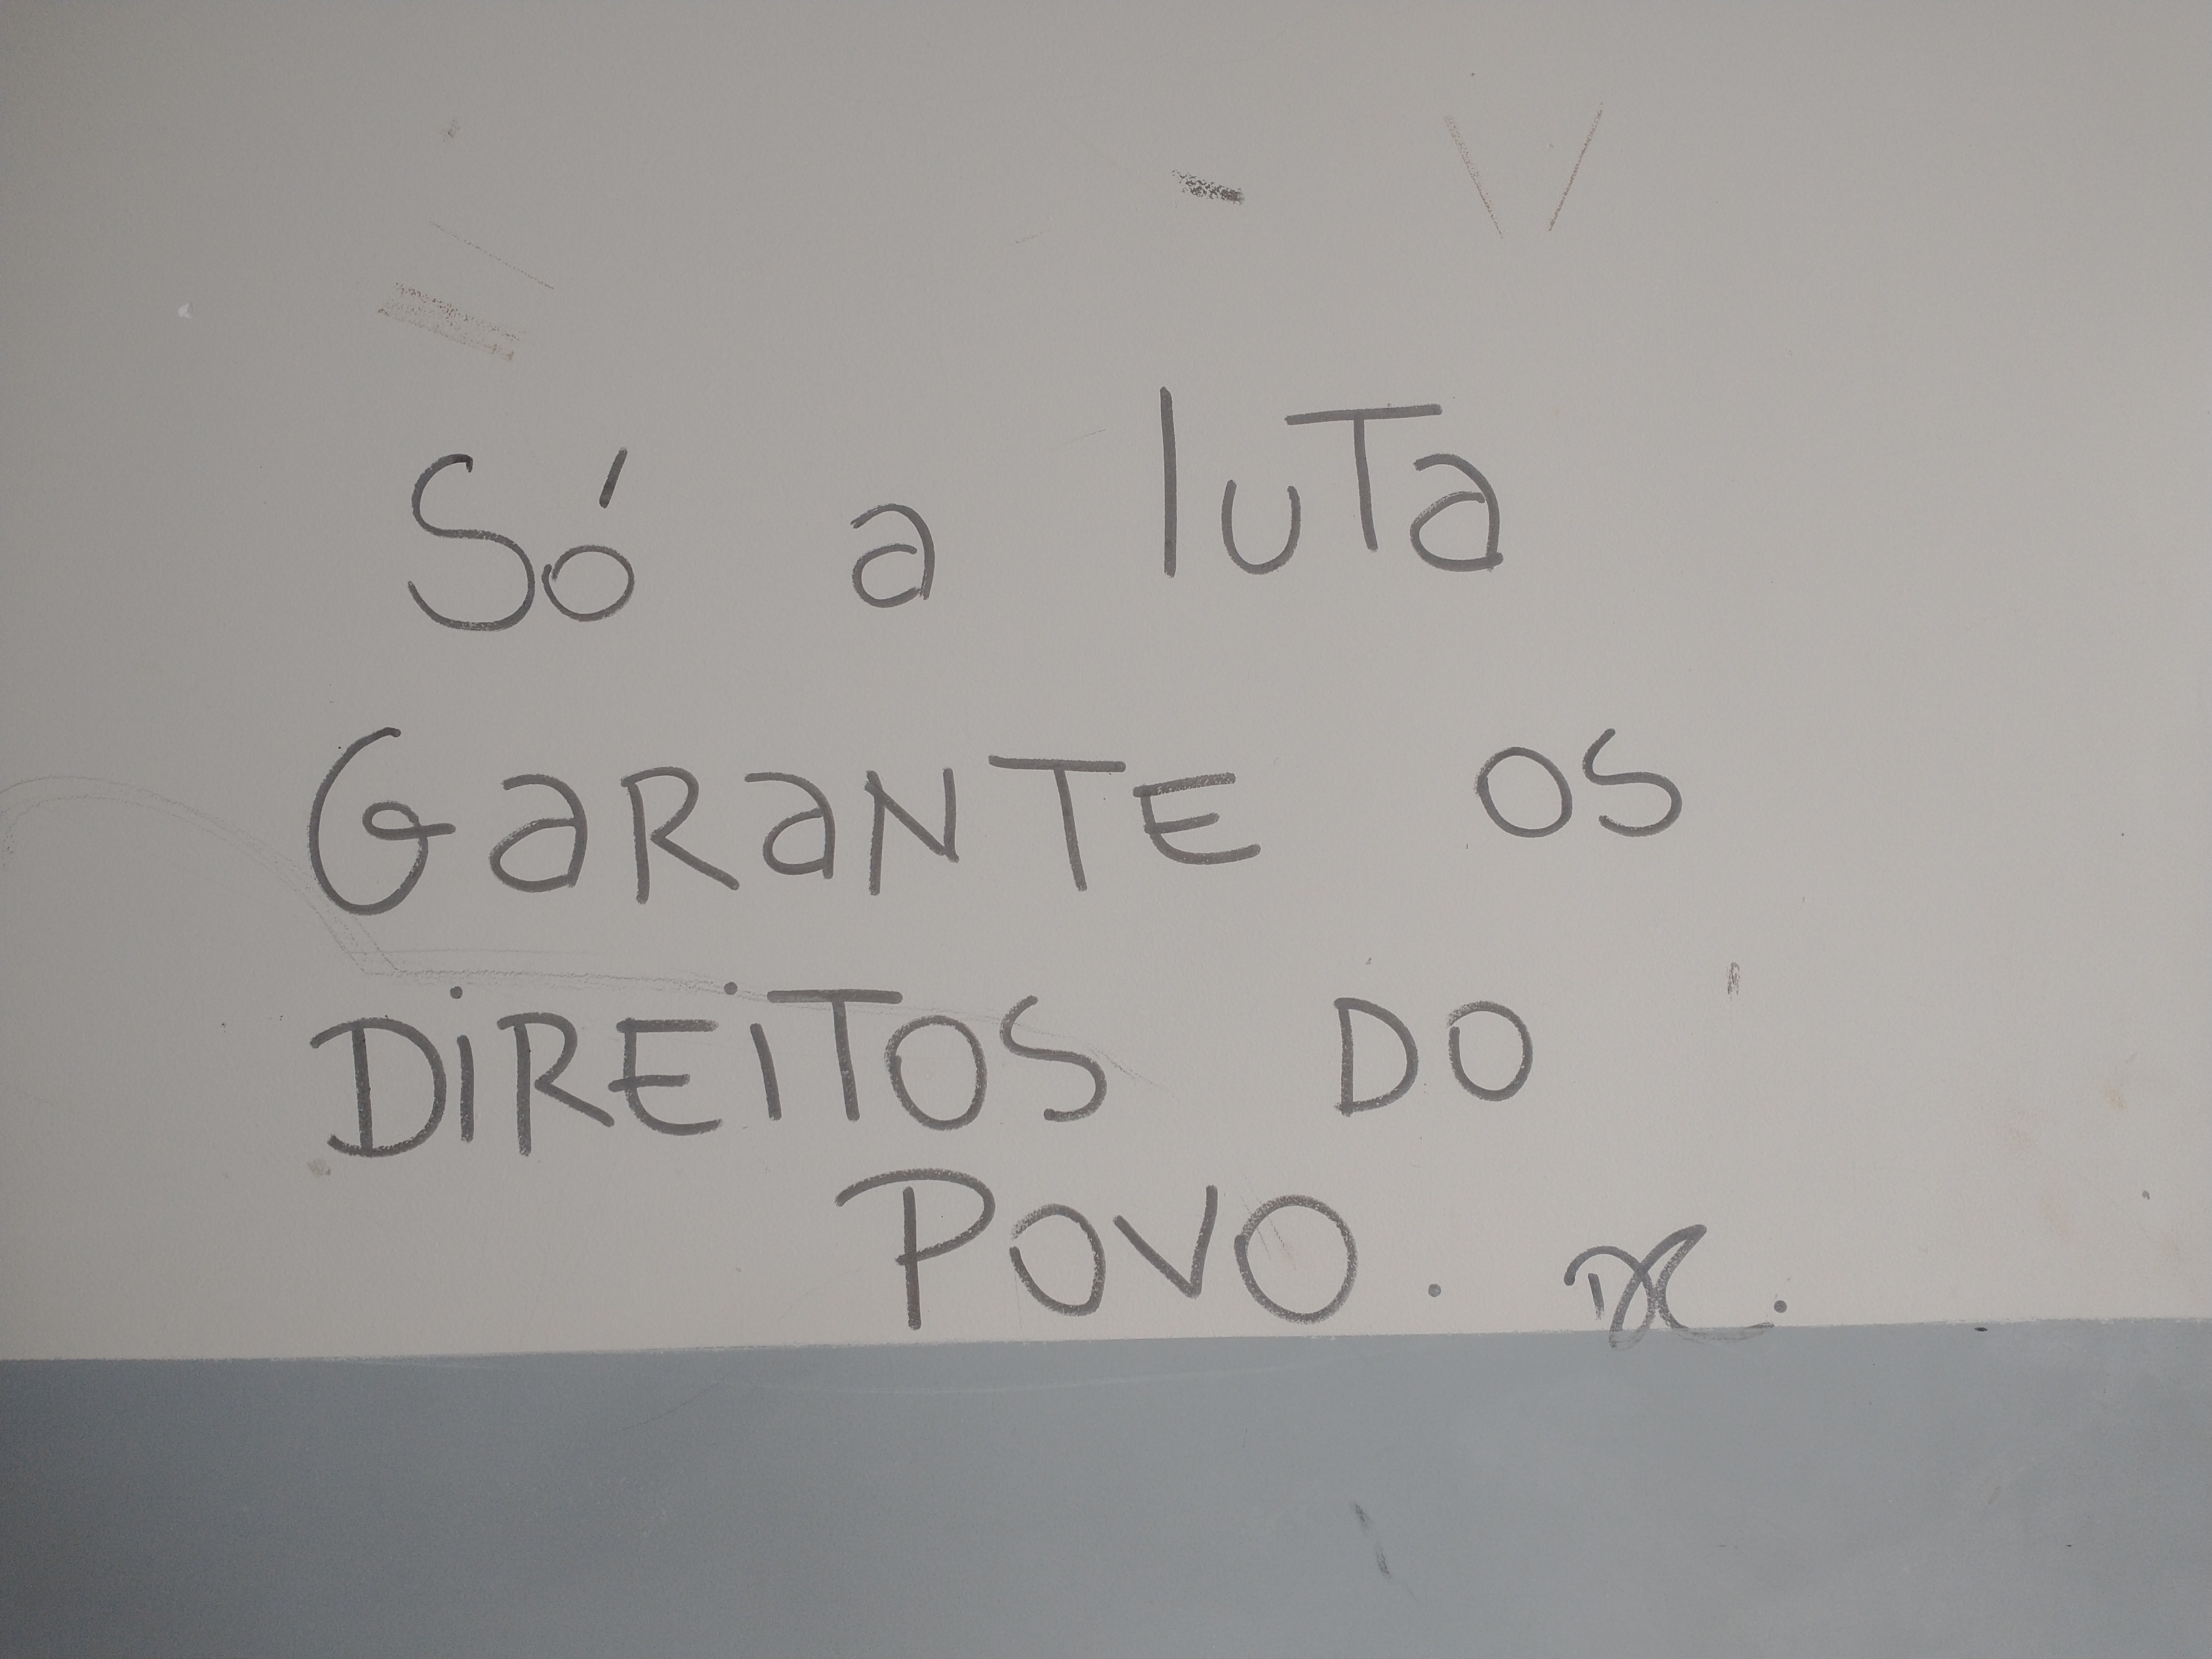 Só a luTa
GaRaNTE OS
DiREiTOS DO
POVO.